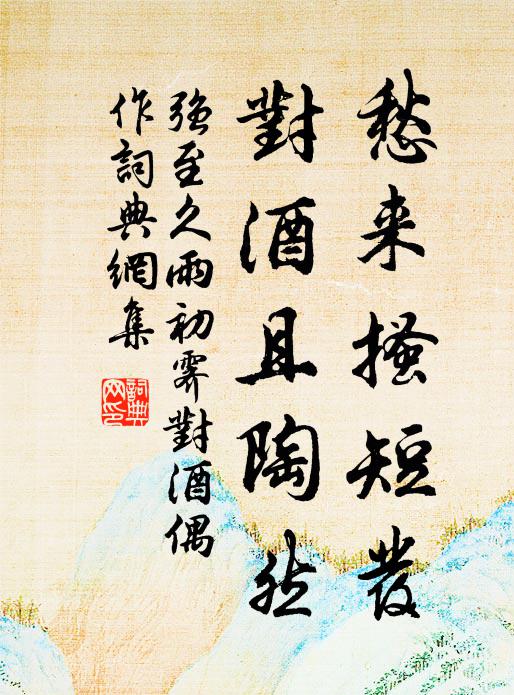 愁来搔短發
對酒且陶然
強至久雨初霽對酒偶
作詞典網集
詞典
网印